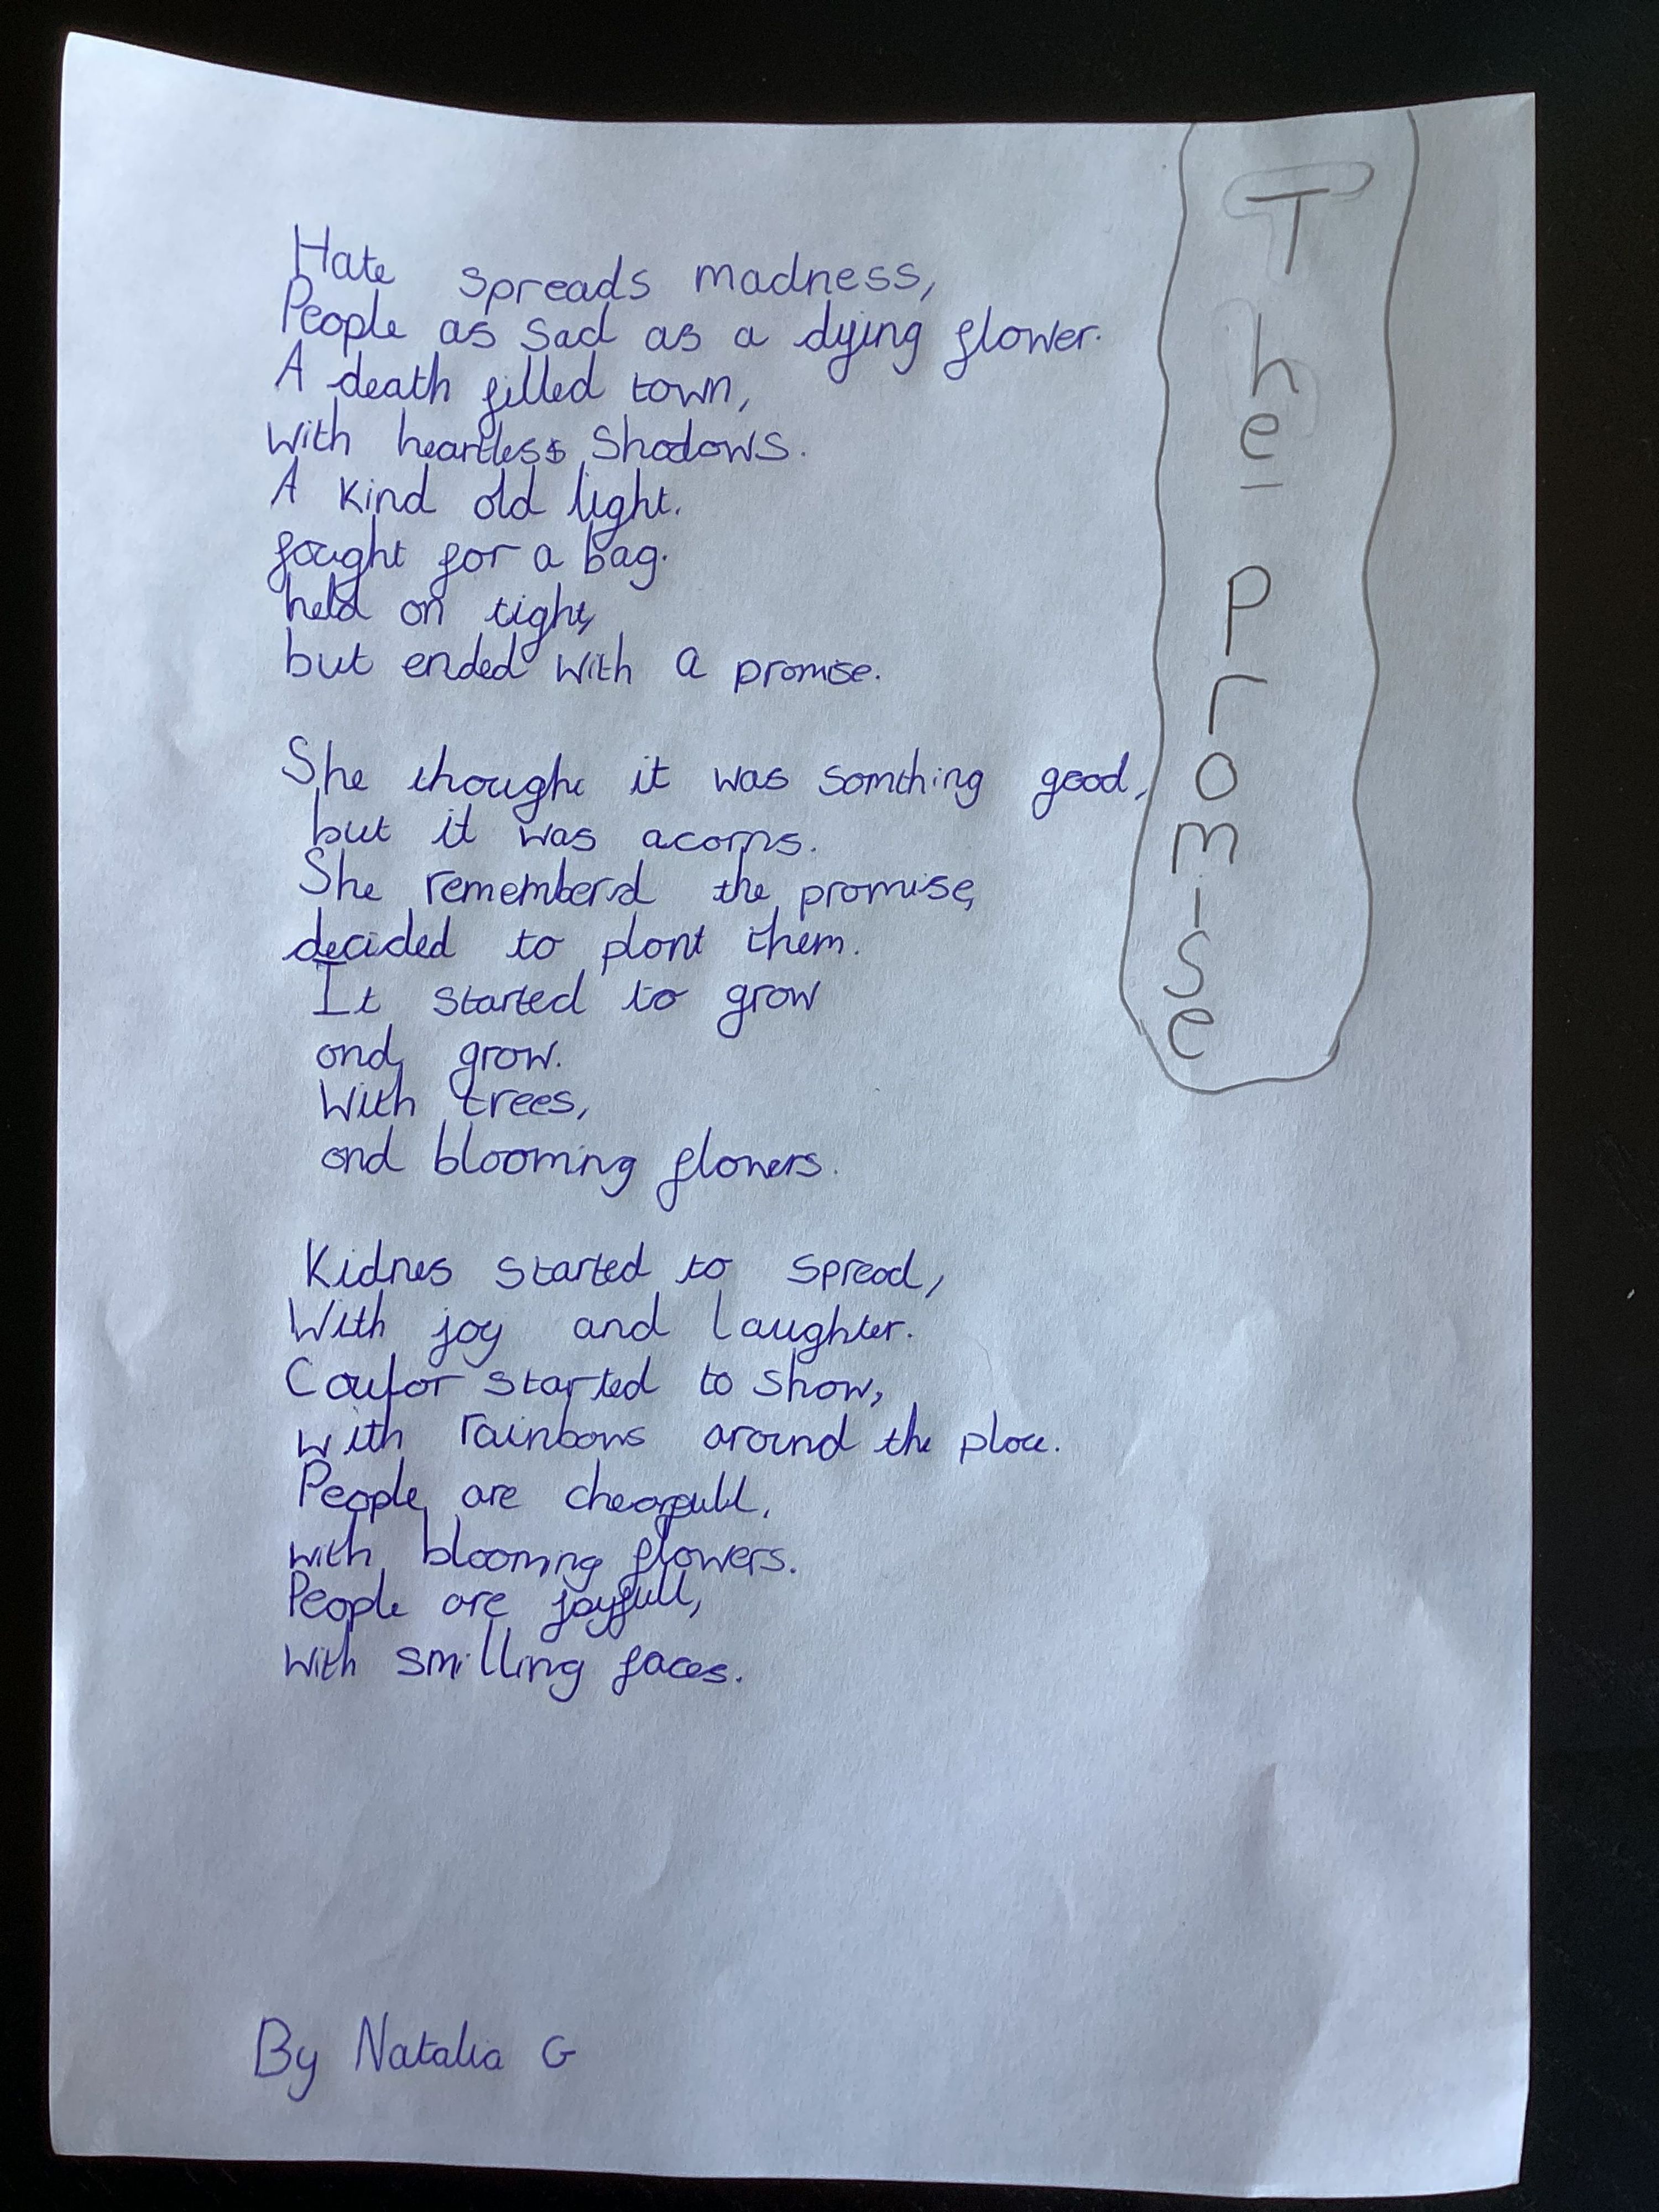 The Promise
Hate spreads madness,
People as sad as a dying flower.
A death filled town,
with heartless shadows.
A kind old light.
fought for a bag.
held on tight,
but ended with a promise.
She thought it was somthing good,
but it was acorns.
She rememberd the promise,
decided to plant them.
It started to grow
and grow.
With trees,
and blooming flowers.
Kidnes started to spread,
With joy and laughter.
Coulor started to show,
with rainbows around the place.
People are chearfull,
with blooming flowers.
People are joyfull,
with smilling faces.
By Natalia G